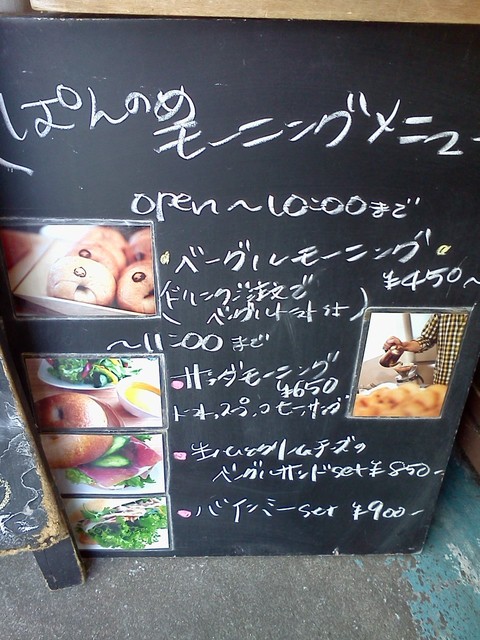 ぱんのめ
モーニングメニュー
open ～10:00まで
ベーグルモーニング
¥450～
(ドリンクご注文で
ベーグルトースト付)
～11:00まで
サラダモーニング
¥650
生ハムとクリームチーズの
ベーグルサンドset ¥850～
バインミーset ¥900～